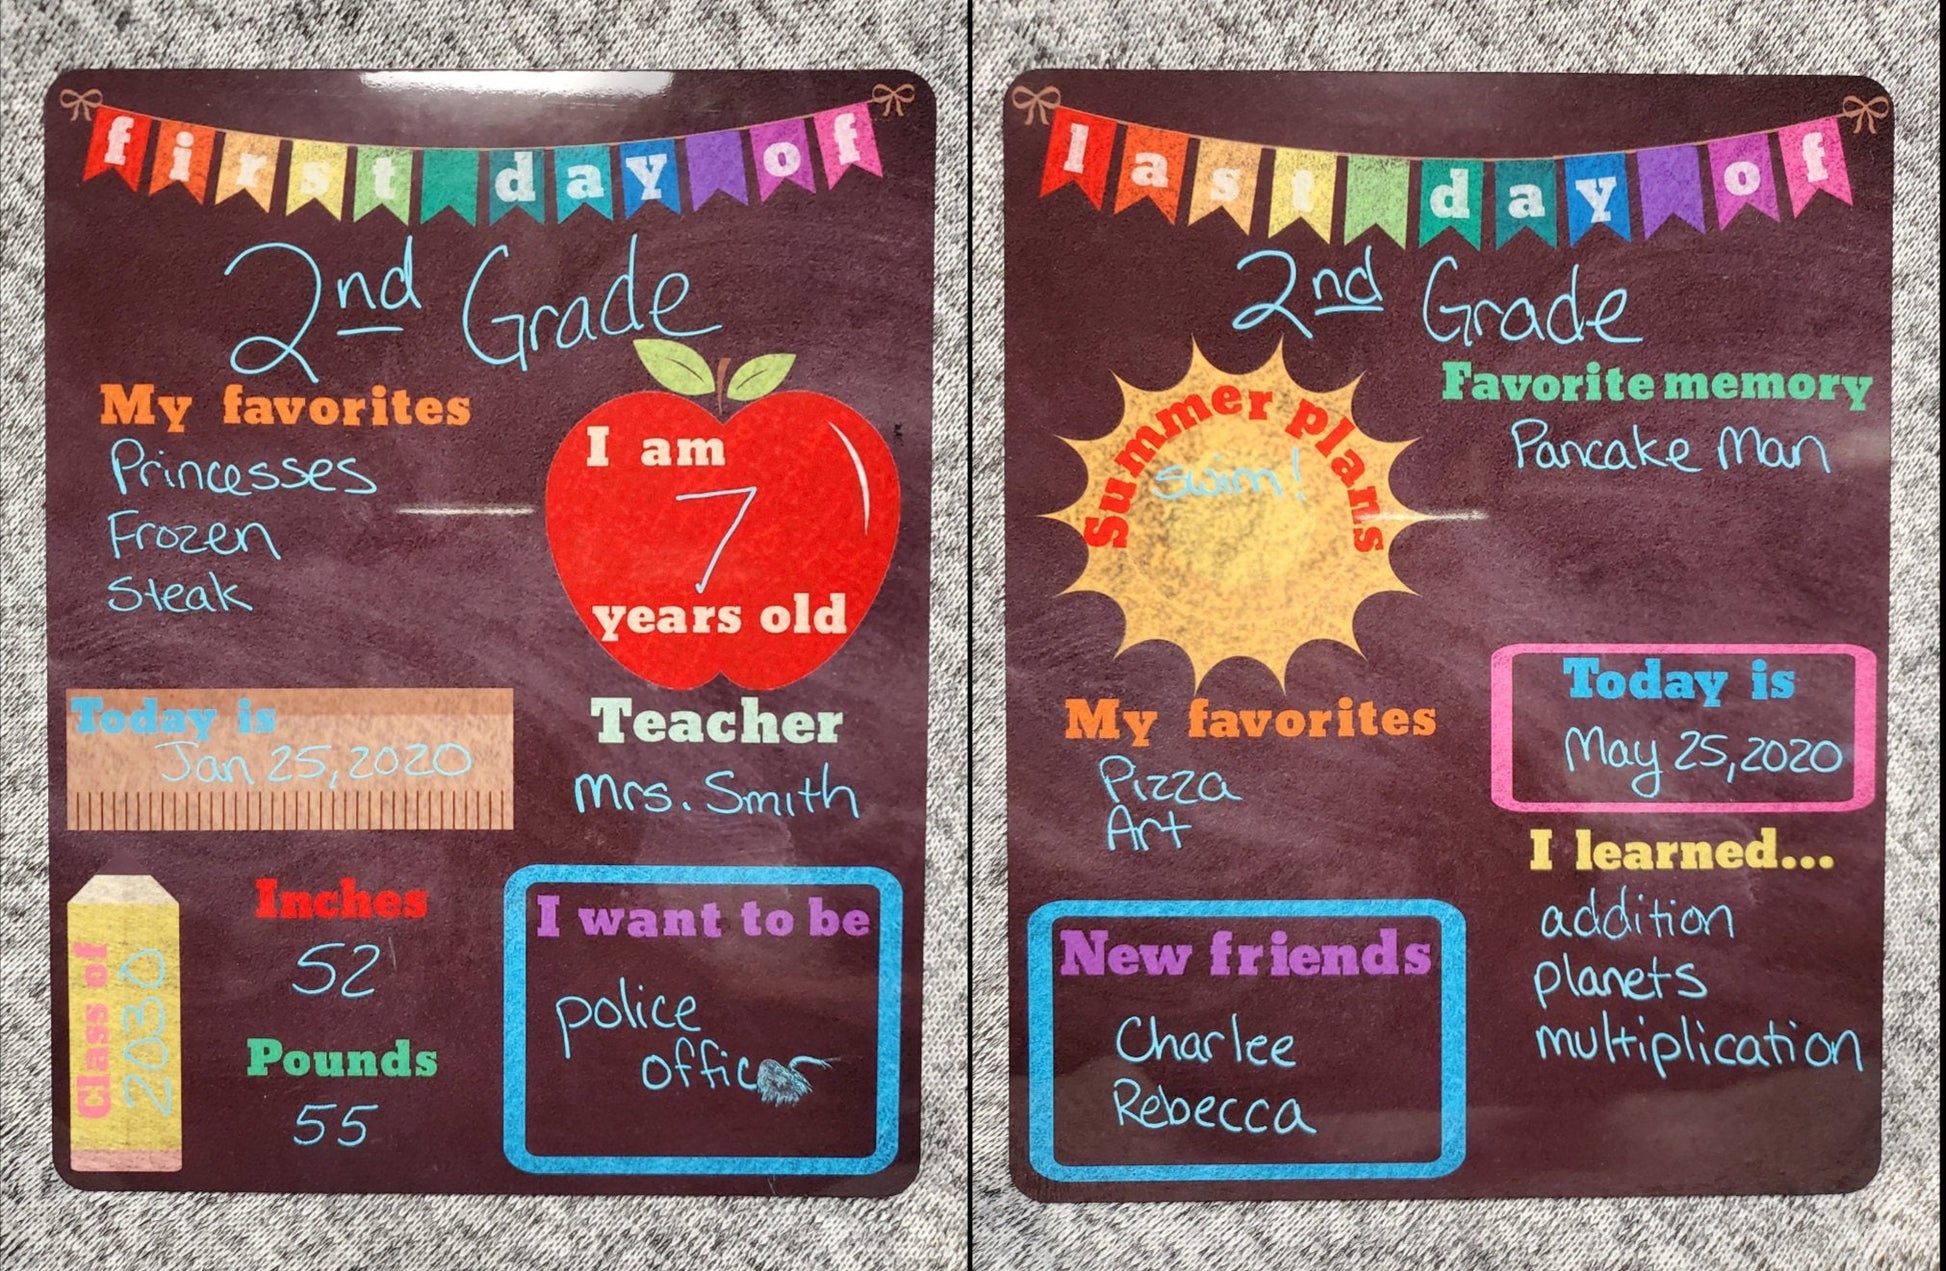 first day of
2nd Grade
My favorites
Princesses
Frozen
Steak
I am
7
years old
Today is
Jan 25, 2020
Teacher
Mrs. Smith
Class of
2030
Inches
52
Pounds
55
I want to be
police
officer
last day of
2nd Grade
Summer plans
swim!
Favorite memory
Pancake Man
My favorites
Pizza
Art
Today is
May 25, 2020
I learned...
addition
planets
multiplication
New friends
Charlee
Rebecca